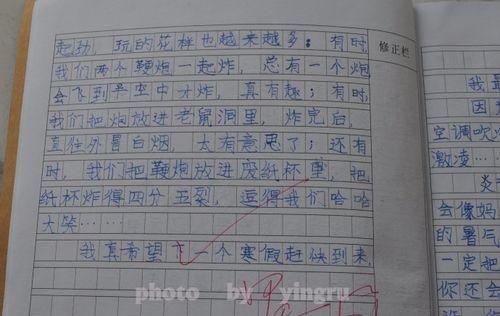 起劲，玩的花样也越来越多：有时，
我们两个鞭炮一起炸，总有一个炮
会飞到半空中才炸，真有趣；有时，
我们把炮放进老鼠洞里，炸完后，
直往外冒白烟，太有意思了；还有
时，我们把鞭炮放进废纸杯里，把
纸杯炸得四分五裂，逗得我们哈哈
大笑……
我真希望下一个寒假赶快到来。
修正栏
我最
因
空调吹
激凌
炎
会像妈
的暑气
一定把
你还会
photo by yingru